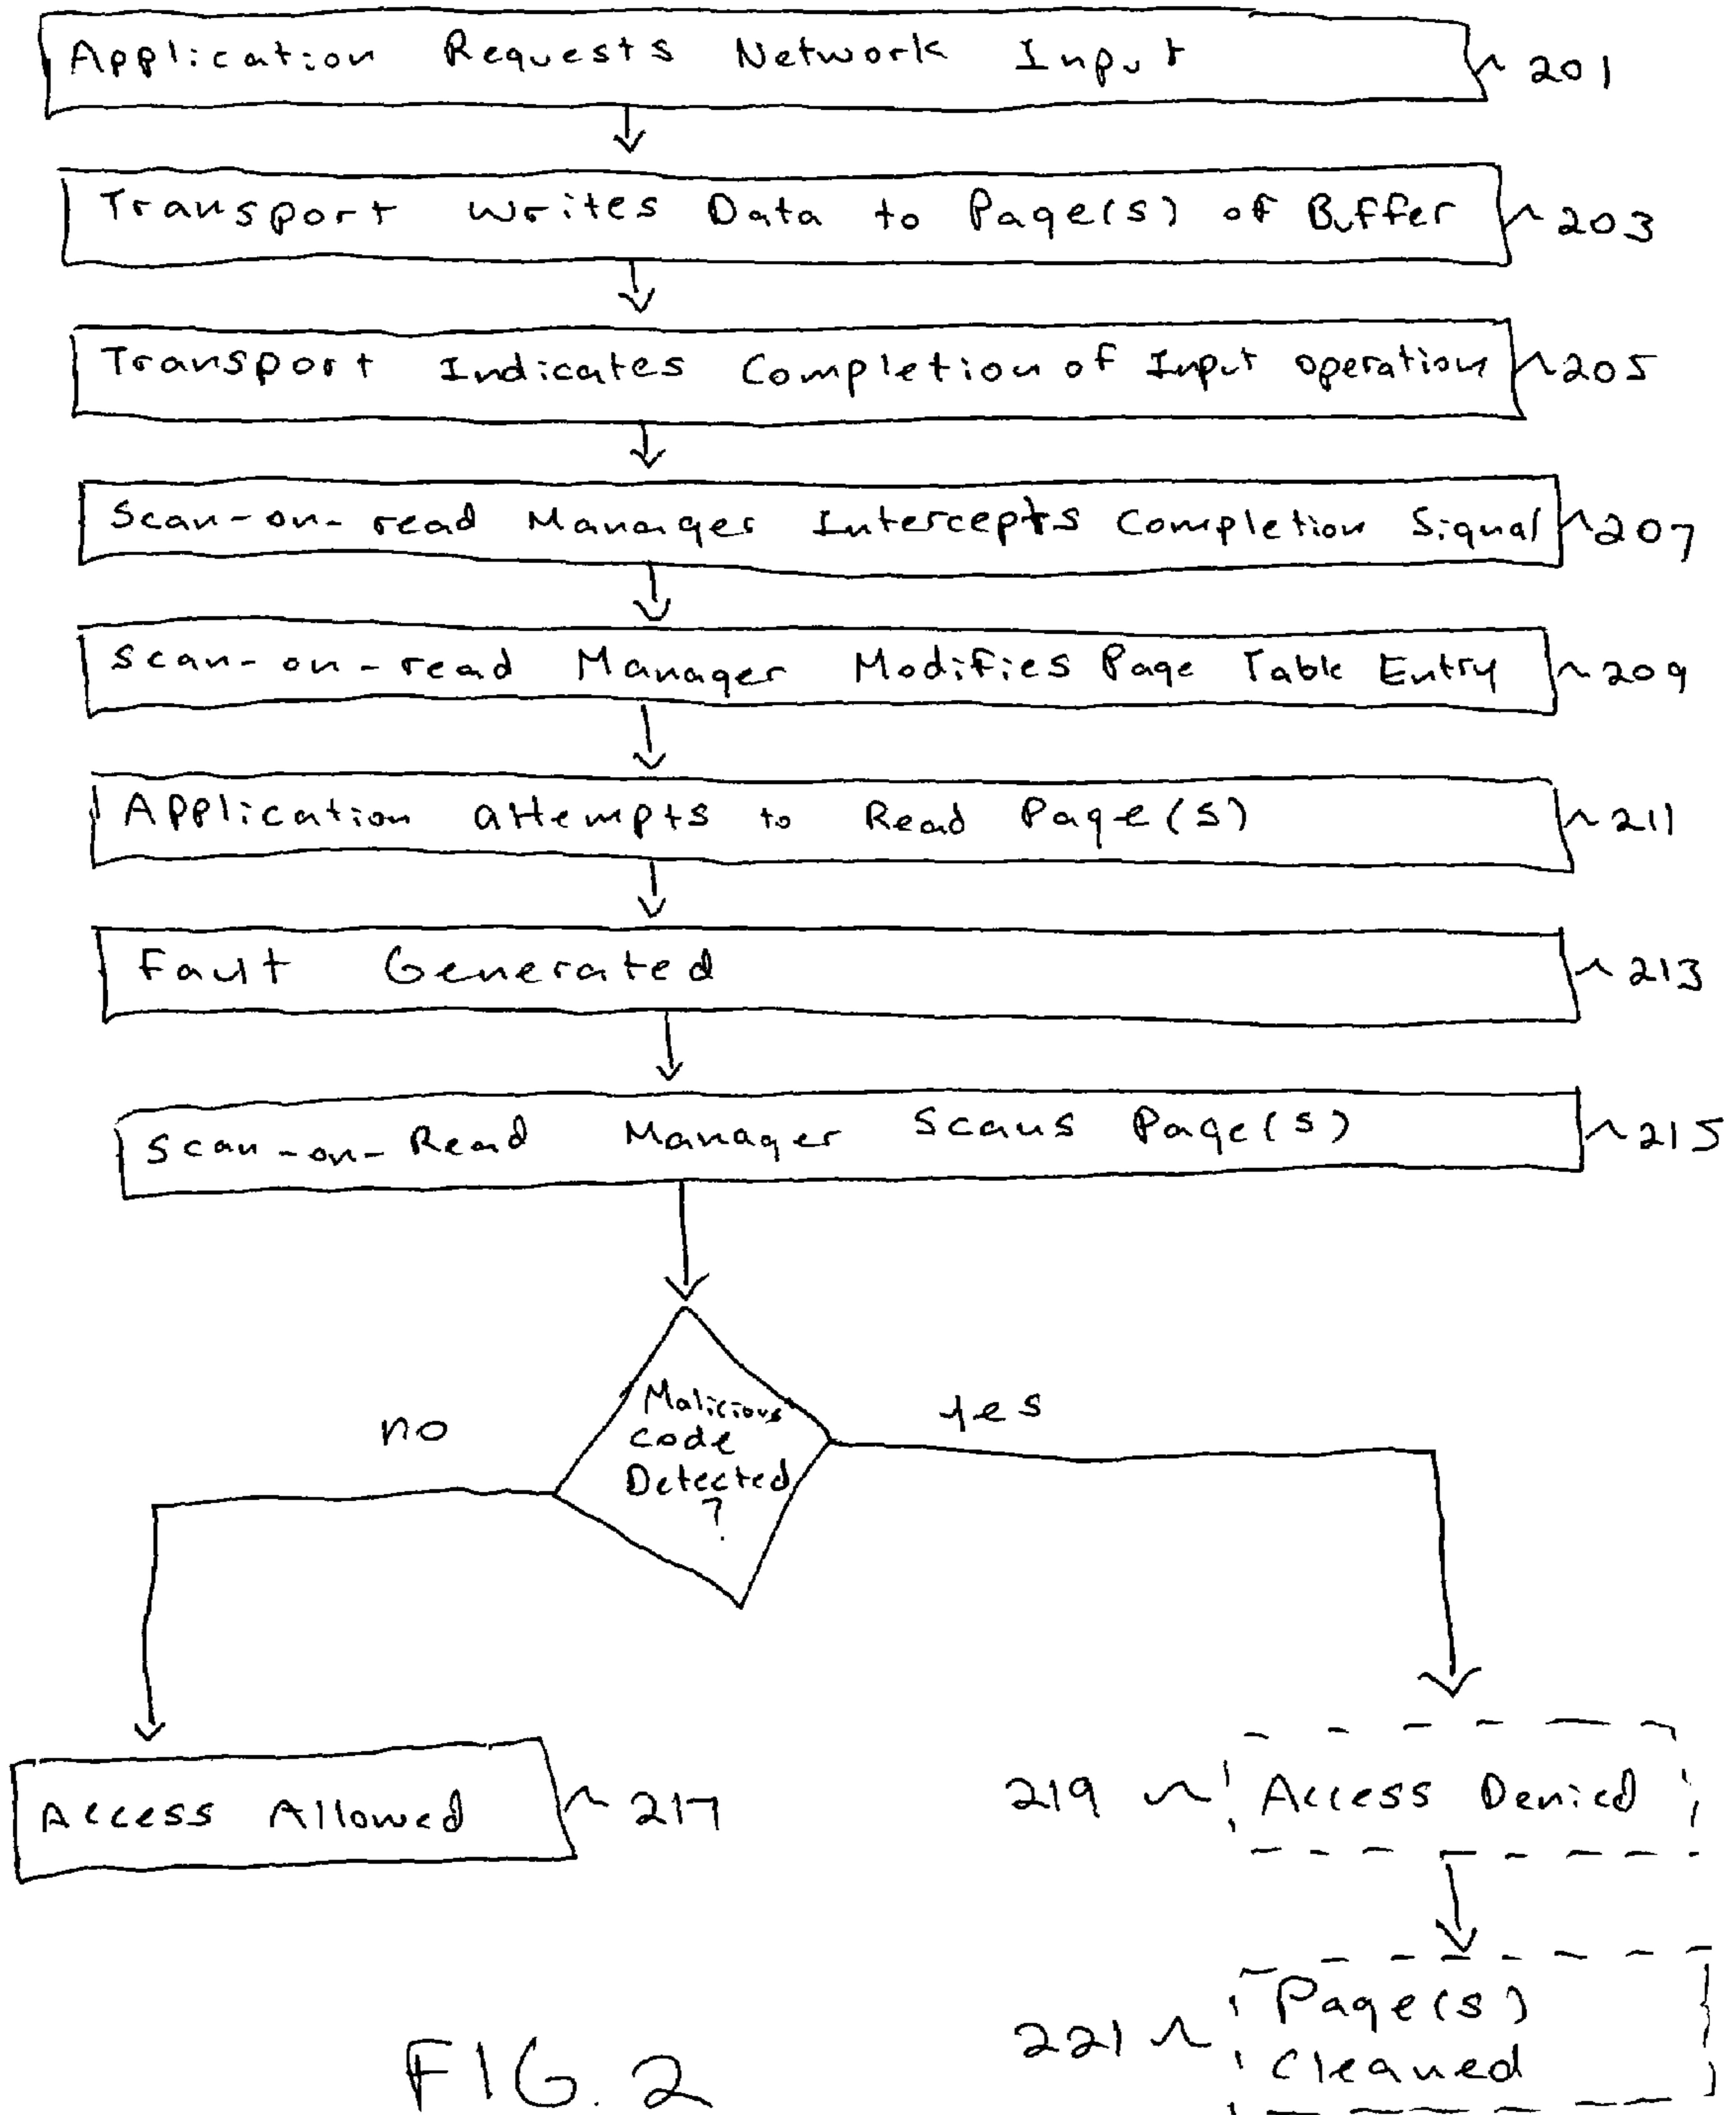 Application Requests Network Input 201
Transport writes Data to Page(s) of Buffer 203
Transport Indicates Completion of Input operation 205
Scan-on-read Manager Intercepts Completion Signal 207
Scan-on-read Manager Modifies Page Table Entry 209
Application attempts to Read Page(s) 211
Fault Generated 213
Scan-on-Read Manager Scans Page(s) 215
Malicious
code
Detected
?
no
yes
Access Allowed 217
219 Access Denied
221 Page(s)
cleaned
FIG. 2